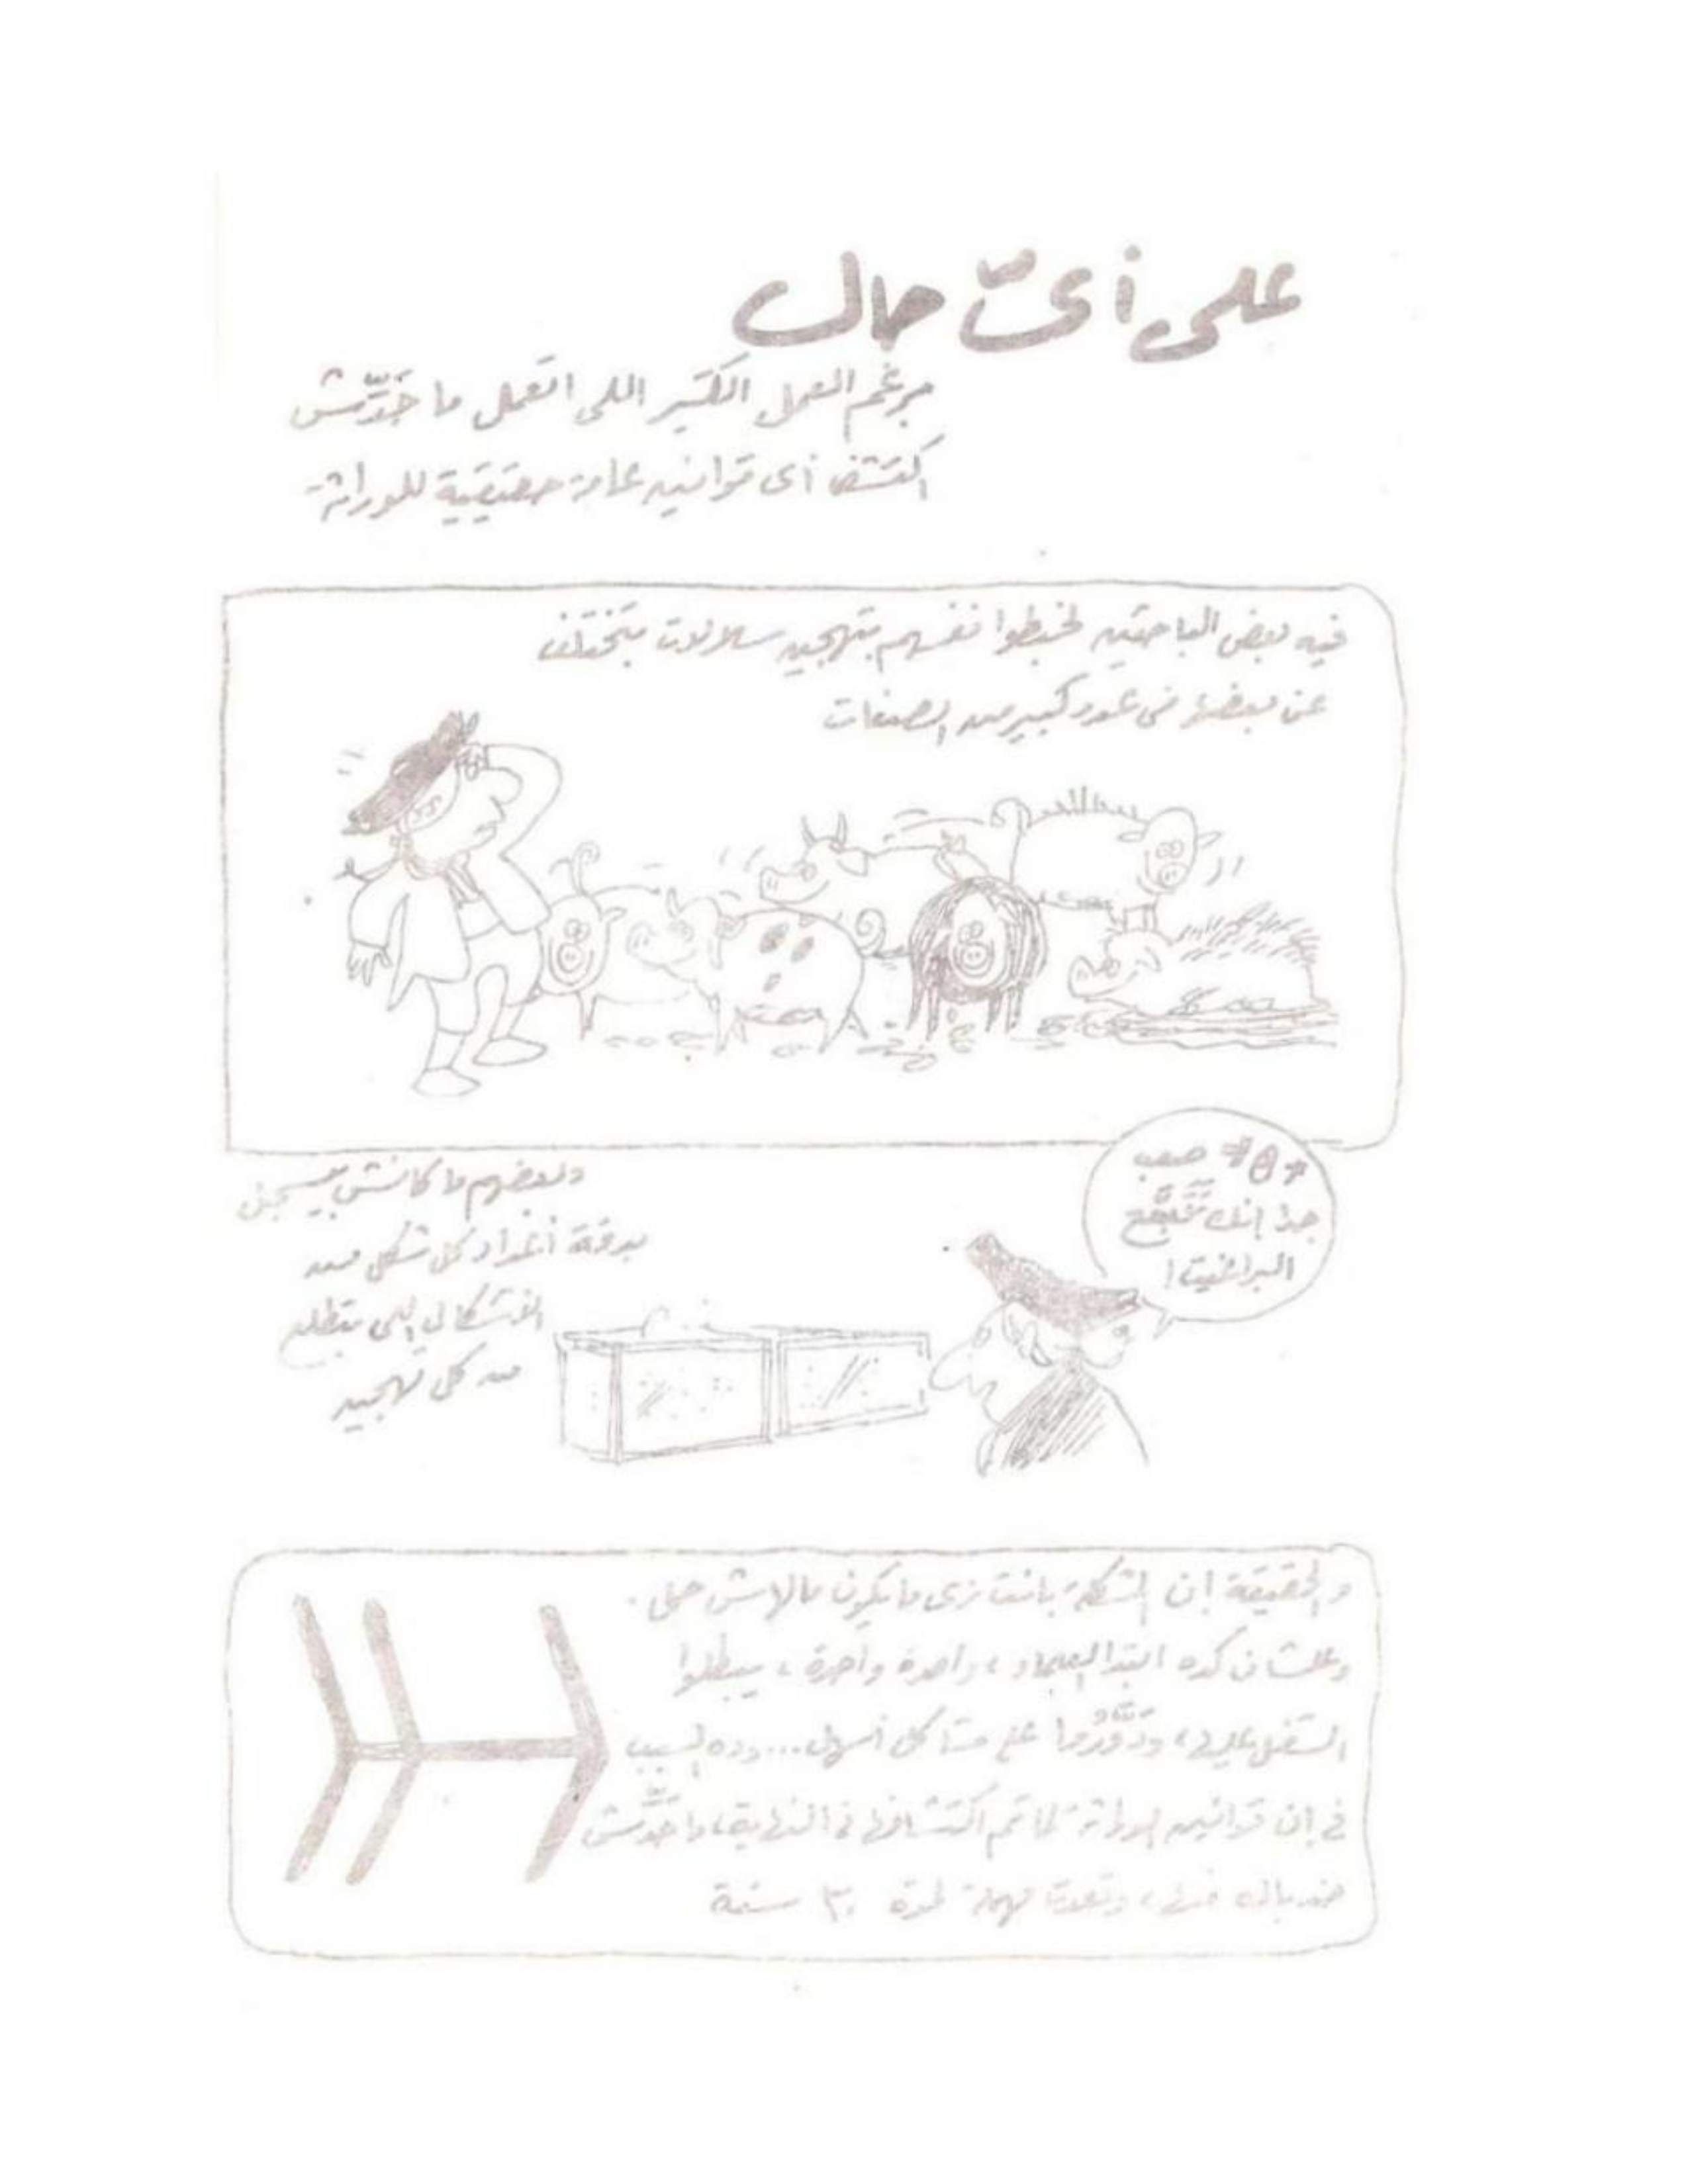 على أىّ حال
برغم العمل الكتير اللى اتعمل ما حَدِّش
اكتشف أى قوانين عامة حقيقية للوراثة
فيه بعض الباحثين لخبطوا نفسهم بتهجين سلالات بتختلف
عن بعضها فى عدد كبير من الصفات
وبعضهم ما كانش بيسجل
بدقة أعداد كل شكل من
الأشكال اللى بتطلع
من كل تهجين
صعب
جدًا إنك تتبع
البراغيت!
والحقيقة إن المشكلة بانت زى ما يكون مالهاش حل.
وعلشان كده ابتدا العلماء، واحدة واحدة، يبطلوا
الشغل عليها، ودَوَّروا على مشاكل أسهل... وده السبب
فى إن قوانين الوراثة لما تم اكتشافها فى النهاية، ماحدّش
خد باله منها، وتعدت مهملة لمدة ٣٠ سنة